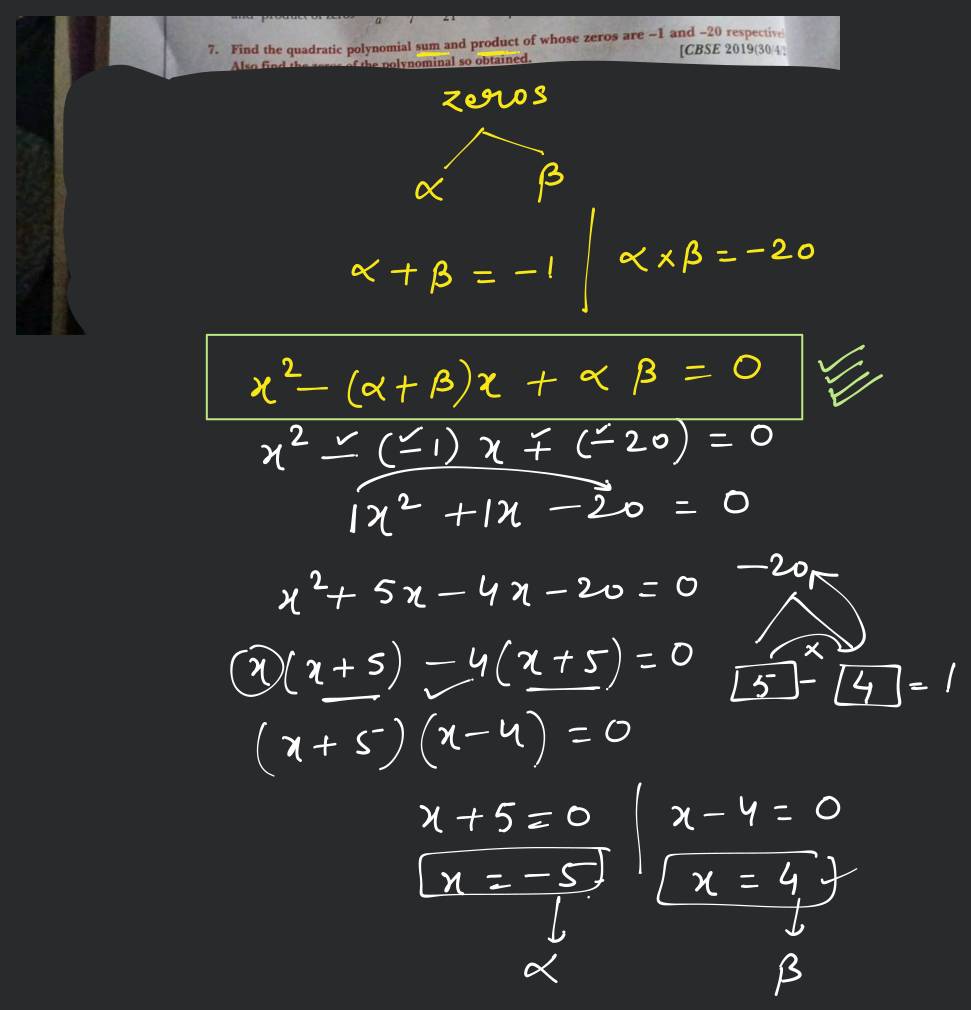 7. Find the quadratic polynomial sum and product of whose zeros are –1 and –20
Also find the zeros of the polynominal so obtained. [CBSE 2019(30/4
zeros
α β
α + β = -1 | α × β = -20
x² - (α + β)x + α β = 0
x² - (-1) x + (-20) = 0
1x² + 1x - 20 = 0
x² + 5x - 4x - 20 = 0
-20
x(x+5) - 4(x+5) = 0
5 - 4 = 1
×
(x+5)(x-4) = 0
x + 5 = 0 | x - 4 = 0
x = -5 x = 4
α β